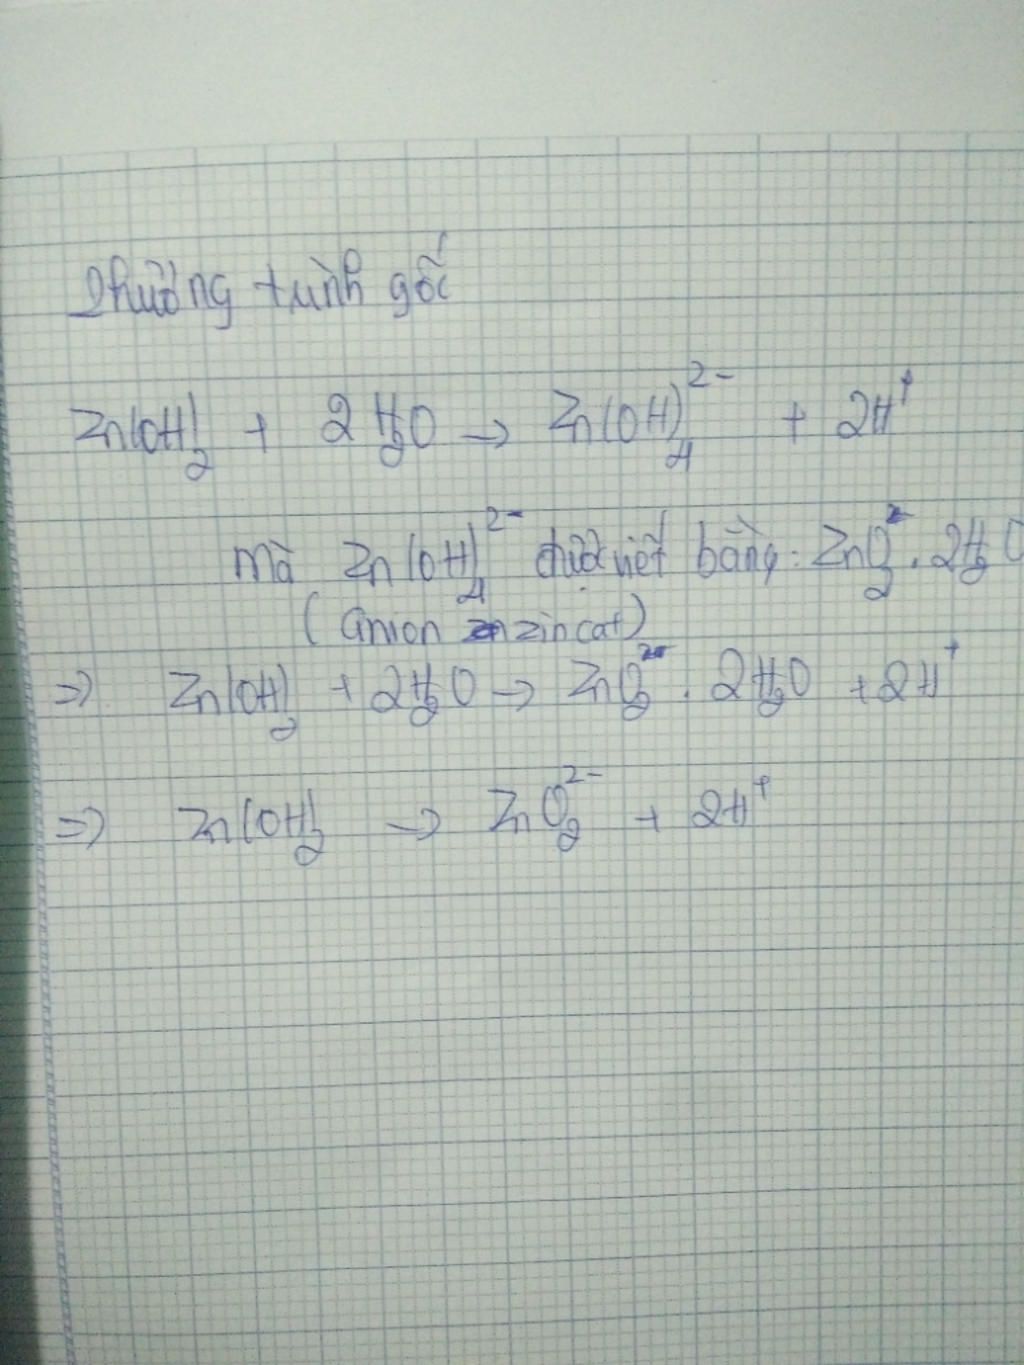 Phương trình gốc
Zn(OH)₂ + 2H₂O → Zn(OH)₄²⁻ + 2H⁺
mà Zn(OH)₄²⁻ được viết bằng: ZnO₂²⁻ . 2H₂O
(anion zincat)
=> Zn(OH)₂ + 2H₂O → ZnO₂²⁻ . 2H₂O + 2H⁺
=> Zn(OH)₂ → ZnO₂²⁻ + 2H⁺